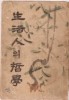 生活人의 哲學